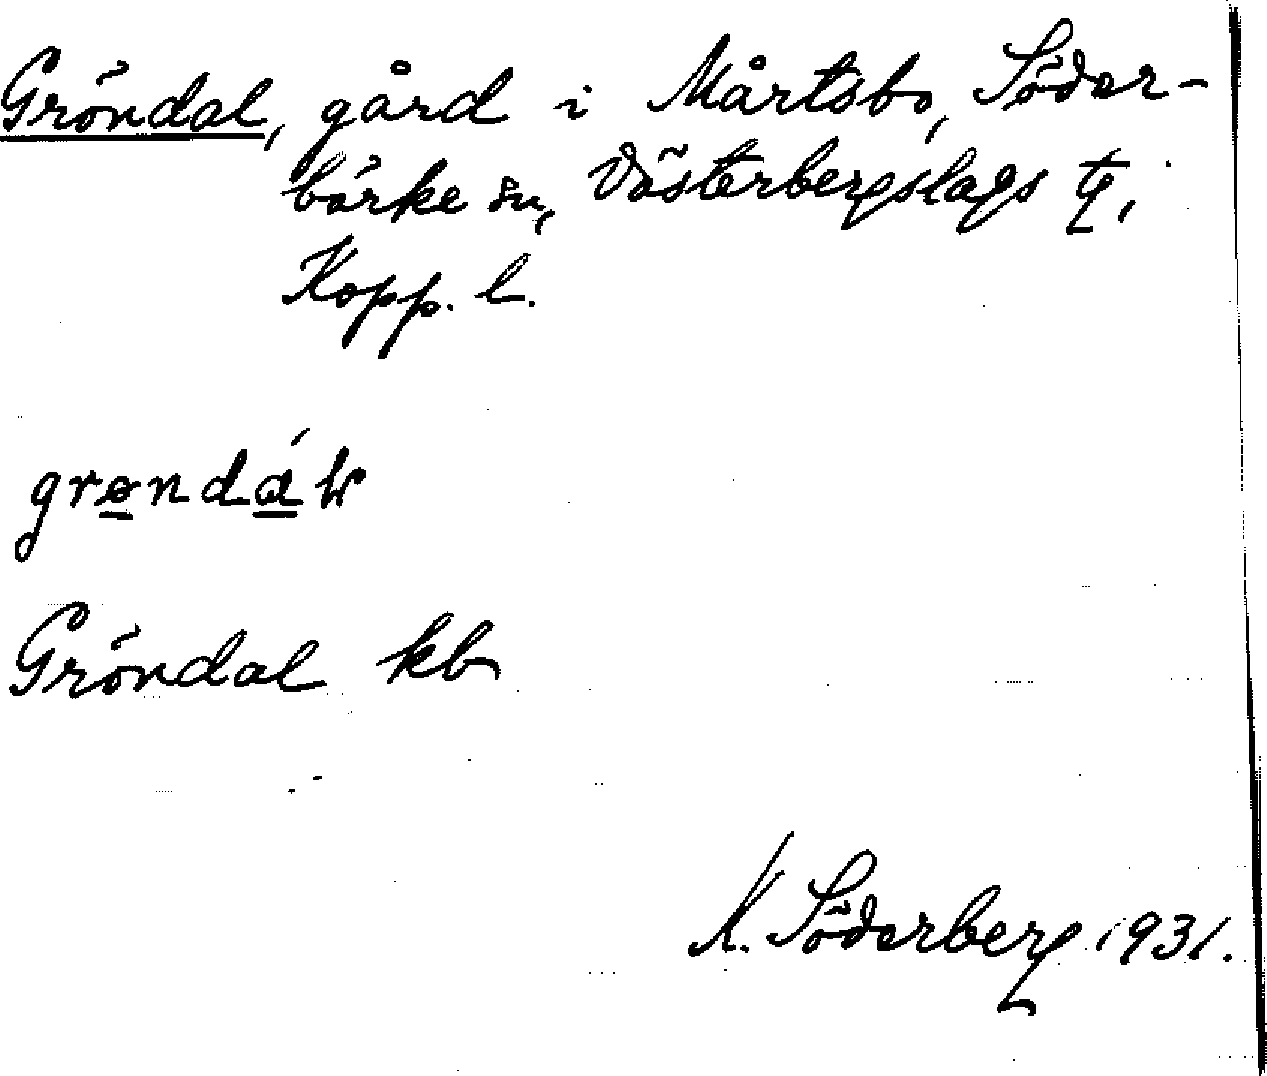 Gröndal, gård i Mårtsbo, Söder-
bärke sn, Västerbergslags tg,
Kopp. l.
Gröndal kb
K. Söderberg 1931.